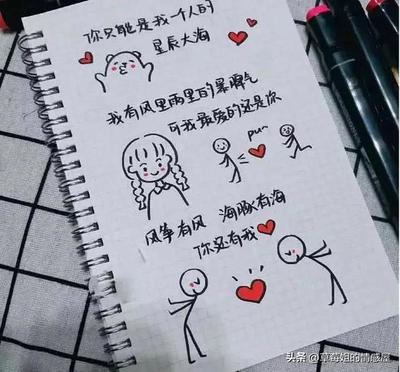 你只能是我一个人的
星辰大海
我有风里雨里的暴脾气
可我最爱的还是你
pur
风筝有风 海豚有海
你还有我
头条 @草莓姐的情感屋